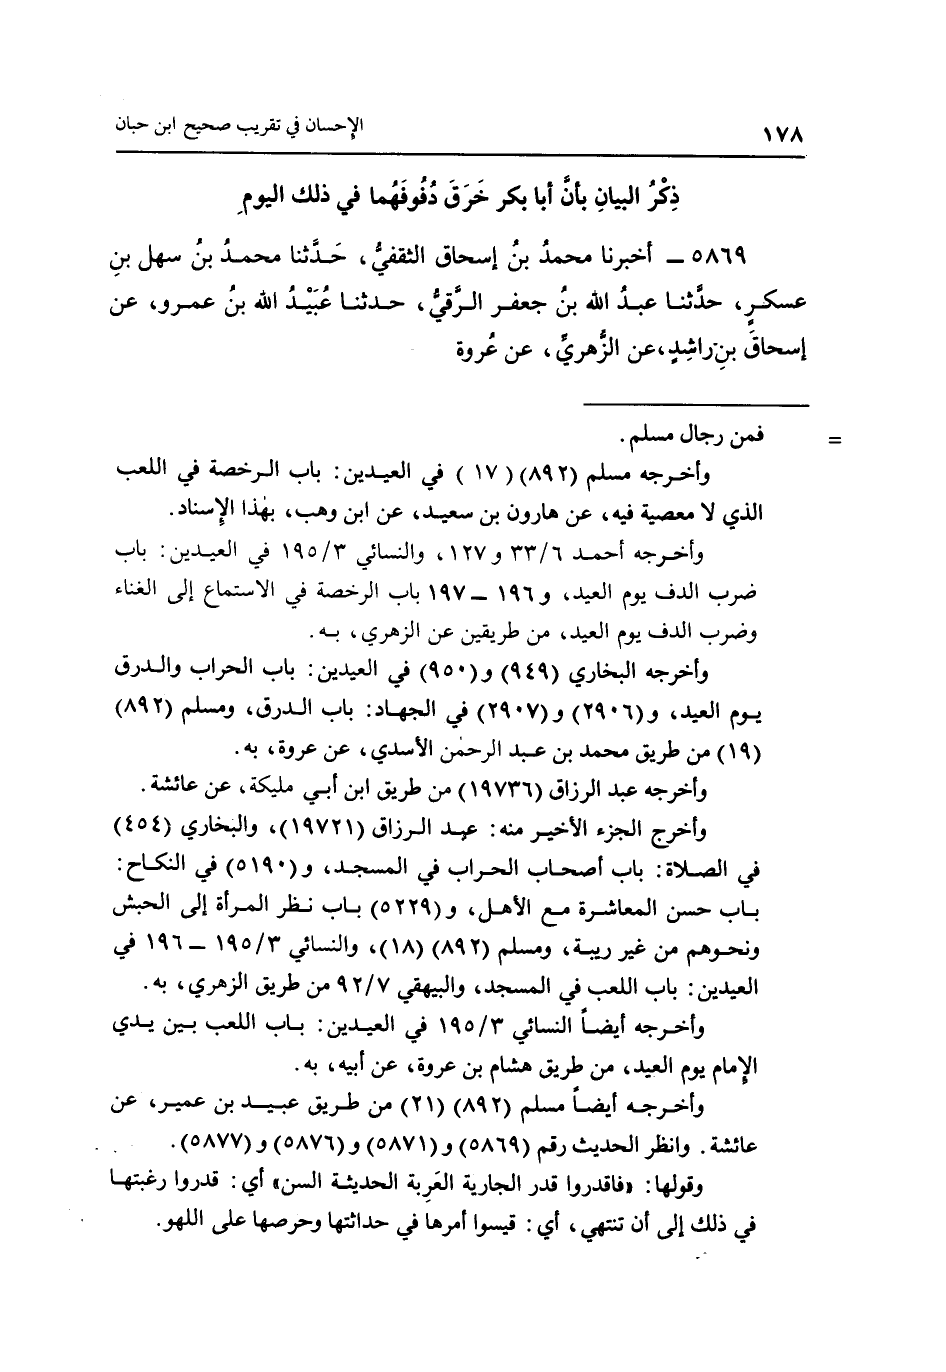 ١٧٨ الإحسان في تقريب صحيح ابن حبان
ذِكْرُ البيانِ بأنَّ أبا بكر خَرَقَ دُفُوفَهُما في ذلك اليومِ
٥٨٦٩ ـ أخبرنا محمدُ بنُ إسحاق الثقفيُّ، حَدَّثنا محمدُ بنُ سهل بنِ
عسكرٍ، حدَّثنا عبدُ الله بنُ جعفر الرَّقيُّ، حدثنا عُبَيْدُ الله بنُ عمرو، عن
إسحاقَ بنِ راشِدٍ، عن الزُّهريِّ، عن عُروة
= فمن رجال مسلم.
وأخرجه مسلم (٨٩٢) (١٧) في العيدين: باب الرخصة في اللعب
الذي لا معصية فيه، عن هارون بن سعيد، عن ابن وهب، بهٰذا الإسناد.
وأخرجه أحمد ٣٣/٦ و١٢٧، والنسائي ١٩٥/٣ في العيدين: باب
ضرب الدف يوم العيد، و١٩٦ ـ ١٩٧ باب الرخصة في الاستماع إلى الغناء
وضرب الدف يوم العيد، من طريقين عن الزهري، به.
وأخرجه البخاري (٩٤٩) و(٩٥٠) في العيدين: باب الحراب والدرق
يوم العيد، و(٢٩٠٦) و(٢٩٠٧) في الجهاد: باب الدرق، ومسلم (٨٩٢)
(١٩) من طريق محمد بن عبد الرحمٰن الأسدي، عن عروة، به.
وأخرجه عبد الرزاق (١٩٧٣٦) من طريق ابن أبي مليكة، عن عائشة.
وأخرج الجزء الأخير منه: عبد الرزاق (١٩٧٢١)، والبخاري (٤٥٤)
في الصلاة: باب أصحاب الحراب في المسجد، و(٥١٩٠) في النكاح:
باب حسن المعاشرة مع الأهل، و(٥٢٢٩) باب نظر المرأة إلى الحبش
ونحوهم من غير ريبة، ومسلم (٨٩٢) (١٨)، والنسائي ١٩٥/٣ ـ ١٩٦ في
العيدين: باب اللعب في المسجد، والبيهقي ٩٢/٧ من طريق الزهري، به.
وأخرجه أيضاً النسائي ١٩٥/٣ في العيدين: باب اللعب بين يدي
الإمام يوم العيد، من طريق هشام بن عروة، عن أبيه، به.
وأخرجه أيضاً مسلم (٨٩٢) (٢١) من طريق عبيد بن عمير، عن
عائشة. وانظر الحديث رقم (٥٨٦٩) و(٥٨٧١) و(٥٨٧٦) و(٥٨٧٧).
وقولها: «فاقدروا قدر الجارية العَرِبة الحديثة السن» أي: قدروا رغبتها
في ذلك إلى أن تنتهي، أي: قيسوا أمرها في حداثتها وحرصها على اللهو.